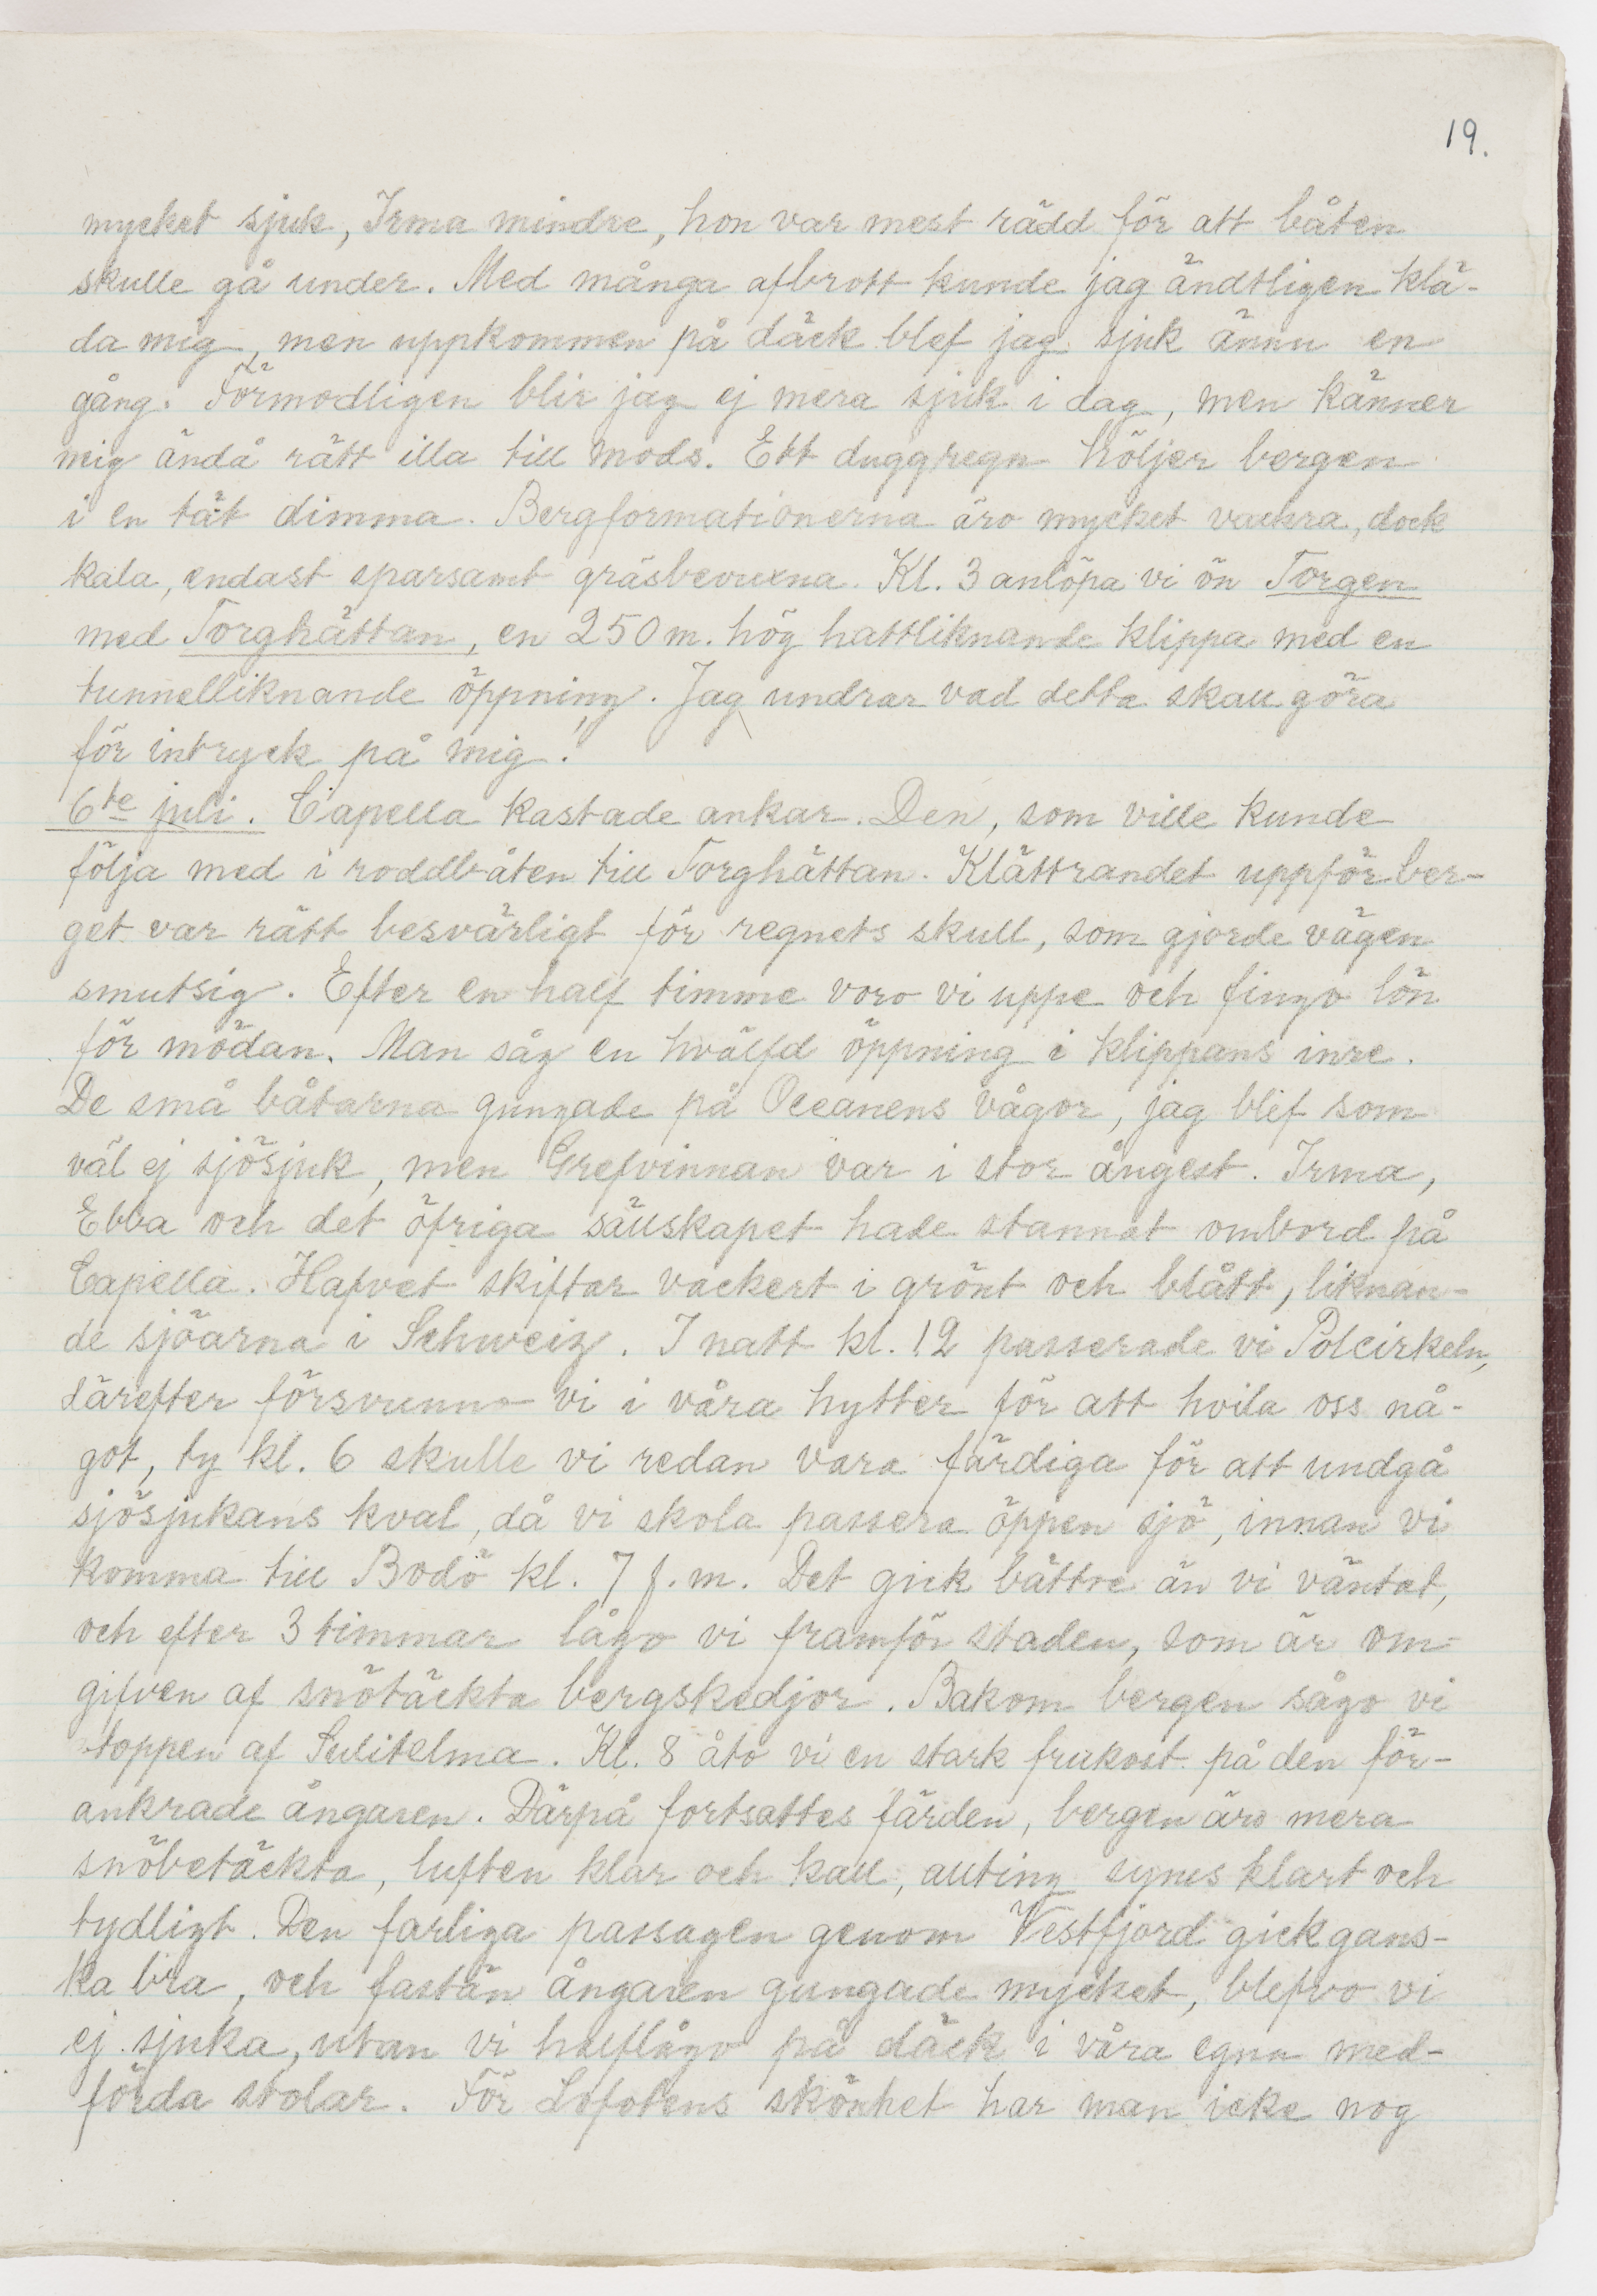 19.
mycket sjuk, Irma mindre, hon var mest rädd för att båten
skulle gå under. Med många afbrott kunde jag ändtligen klä-
da mig, men uppkommen på däck blef jag sjuk ännu en
gång. Förmodligen blir jag ej mera sjuk i dag, men känner
mig ändå rätt illa till mods. Ett duggregn höljer bergen
i en tät dimma. Bergformationerna äro mycket vackra, dock
kala, endast sparsamt gräsbevuxna. Kl. 3 anlöpa vi ön Torgen
med Torghättan, en 250 m. hög hattliknande klippa med en
tunnelliknande öppning. Jag undrar vad detta skall göra
för intryck på mig!
6te juli. Capella kastade ankar. Den, som ville kunde
följa med i roddbåten till Torghättan. Klättrandet uppför ber-
get var rätt besvärligt för regnets skull, som gjorde vägen
smutsig. Efter en half timme voro vi uppe och fingo lön
för mödan. Man såg en hvälfd öppning i klippans inre.
De små båtarna gungade på Oceanens vågor, jag blef som
väl ej sjösjuk, men Grefvinnan var i stor ångest. Irma,
Ebba och det öfriga sällskapet hade stannat ombord på
Capella. Hafvet skiftar vackert i grönt och blått, liknan-
de sjöarna i Schweiz. I natt kl. 12 passerade vi Polcirkeln,
därefter försvunno vi i våra hytter för att hvila oss nå-
got, ty kl. 6 skulle vi redan vara färdiga för att undgå
sjösjukans kval, då vi skola passera öppen sjö, innan vi
komma till Bodö kl. 7 f.m. Det gick bättre än vi väntat,
och efter 3 timmar lågo vi framför staden, som är om-
gifven af snötäckta bergskedjor. Bakom bergen sågo vi
toppen af Sulitelma. Kl. 8 åto vi en stark frukost på den för-
ankrade ångaren. Därpå fortsattes färden, bergen äro mera
snöbetäckta, luften klar och kall, allting synes klart och
tydligt. Den farliga passagen genom Vestfjord gick gans-
ka bra, och fastän ångaren gungade mycket, blefvo vi
ej sjuka, utan vi halflågo på däck i våra egna med-
förda stolar. För Lofotens skönhet har man icke nog